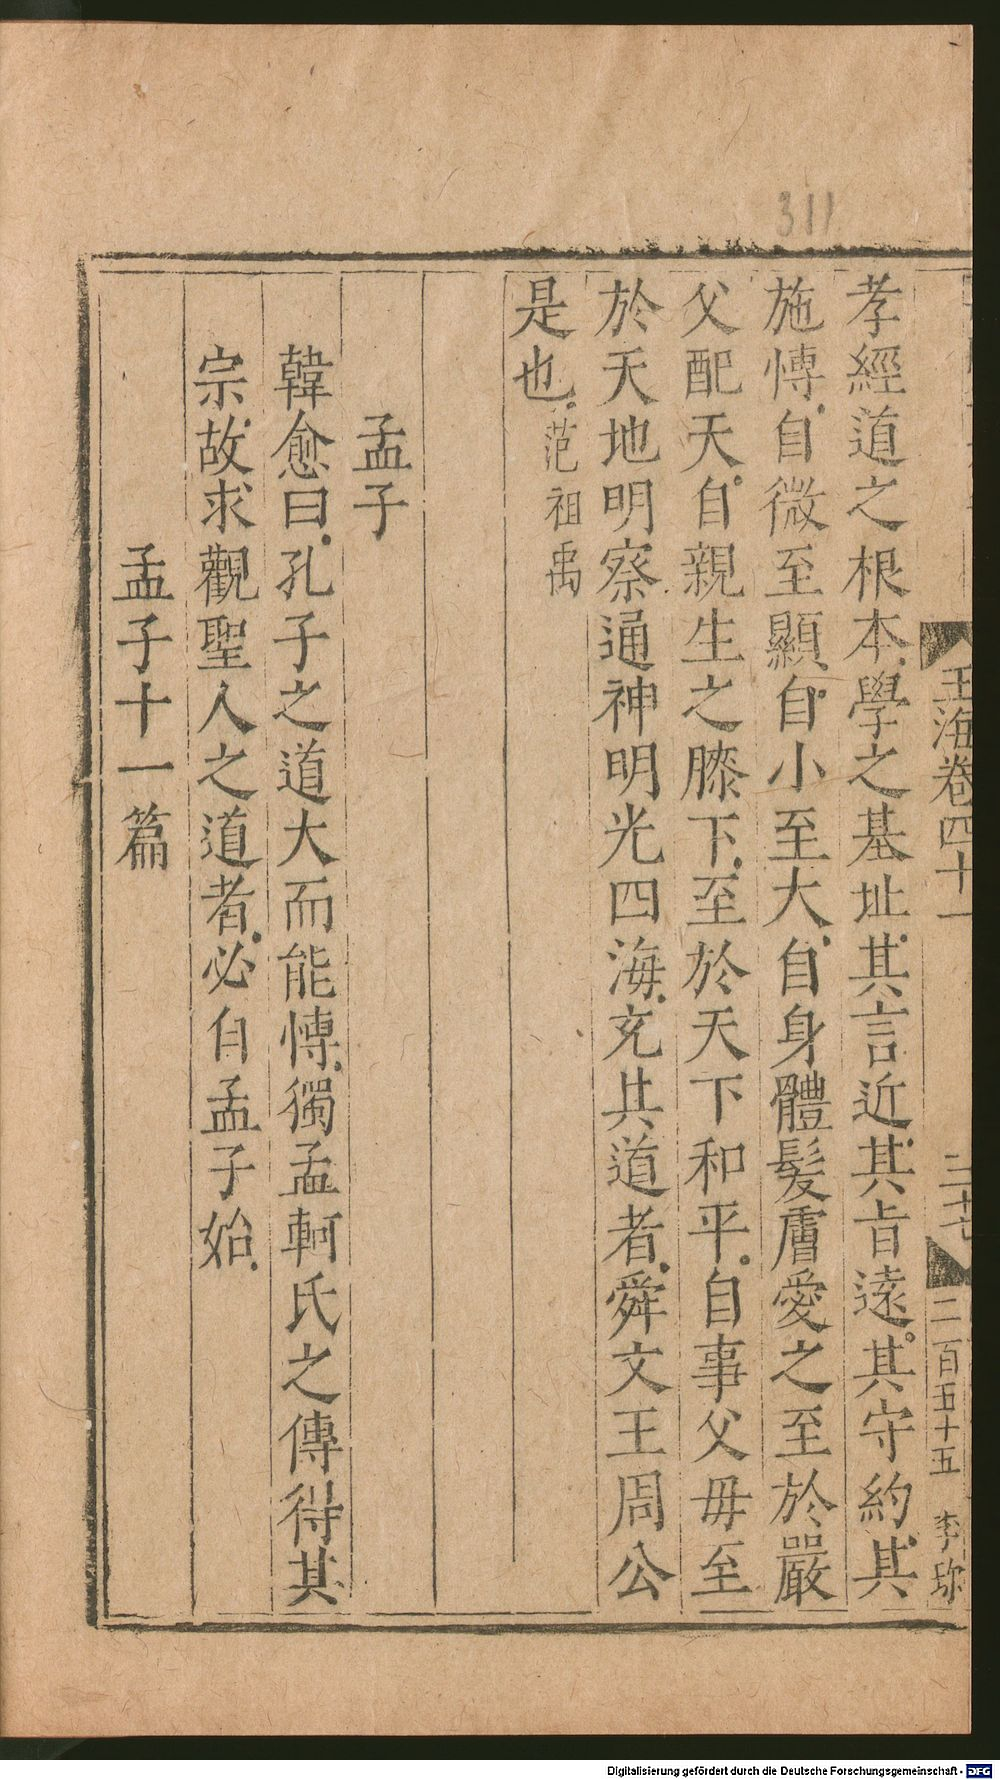 311
玉海卷四十一 二十七 二百五十五 李珎
孝經道之根本學之基址其言近其㫖遠其守約其
施愽自微至顯自小至大自身體髮膚愛之至於嚴
父配天自親生之膝下至於天下和平自事父毋至
於天地明察通神明光四海充其道者舜文王周公
是也范祖禹
孟子
韓愈曰孔子之道大而能愽獨孟軻氏之傳得其
宗故求觀聖人之道者必自孟子始
孟子十一篇
Digitalisierung gefördert durch die Deutsche Forschungsgemeinschaft - DFG